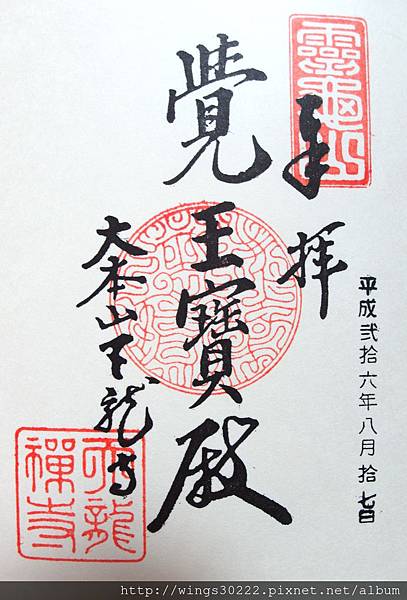 平成弐拾六年八月拾七日
靈龜山
奉拝
覺王寶殿
大本山天龍寺
天龍禪寺
http://wings30222.pixnet.net/album